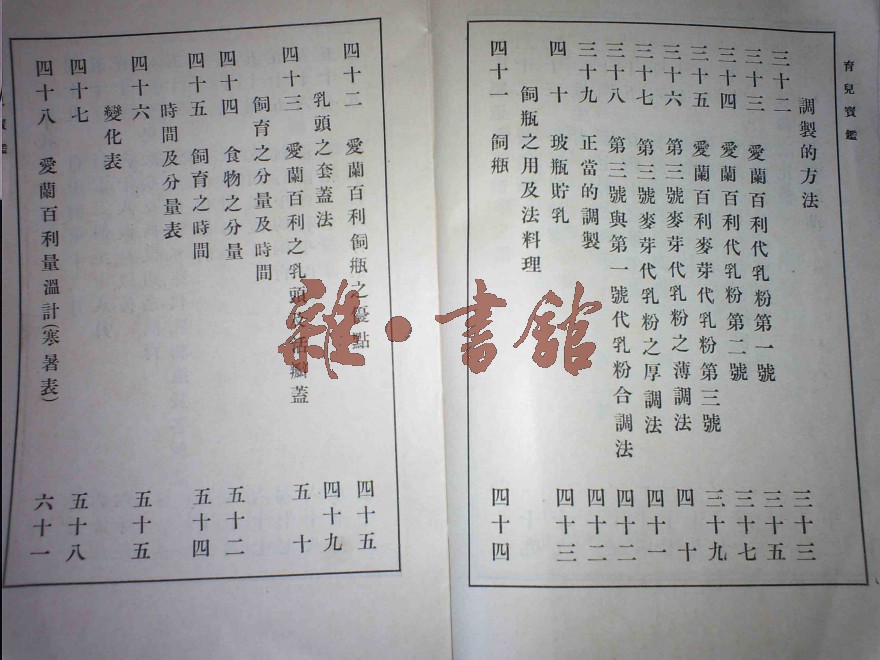 育兒寶鑑
調製的方法
三十二 三十三
三十三 愛蘭百利代乳粉第一號 三十五
三十四 愛蘭百利代乳粉第二號 三十七
三十五 愛蘭百利麥芽代乳粉第三號 三十九
三十六 第三號麥芽代乳粉之薄調法 四十
三十七 第三號麥芽代乳粉之厚調法 四十一
三十八 第三號與第一號代乳粉合調法 四十二
三十九 正當的調製 四十二
四十 玻瓶貯乳 四十三
飼瓶之用及法料理
四十一 飼瓶 四十四
四十二 愛蘭百利飼瓶之優點 四十五
乳頭之套蓋法 四十九
四十三 愛蘭百利之乳頭及活瓣蓋 五十
飼育之分量及時間
四十四 食物之分量 五十二
四十五 飼育之時間 五十四
時間及分量表
四十六 五十五
變化表
四十七 五十八
四十八 愛蘭百利量溫計(寒暑表) 六十一
寶鑑
雜·書館